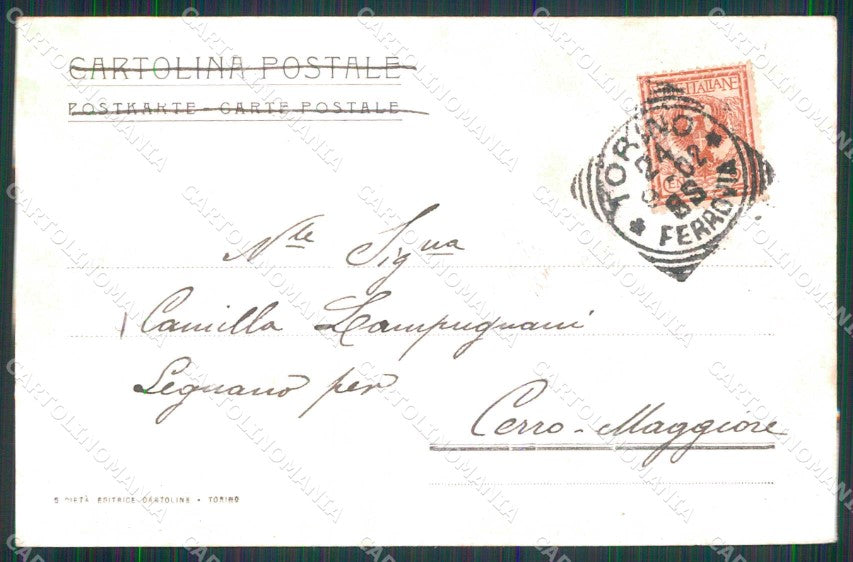 CARTOLINA POSTALE
POSTKARTE - CARTE POSTALE
ITALIANE
TORINO
24
02
8S
FERROVIA
Nte Sigua
Camilla Lampugnani
Legnano per
Cerro-Maggiore
SOCIETÀ EDITRICE CARTOLINE - TORINO
CARTOLINOMANIA